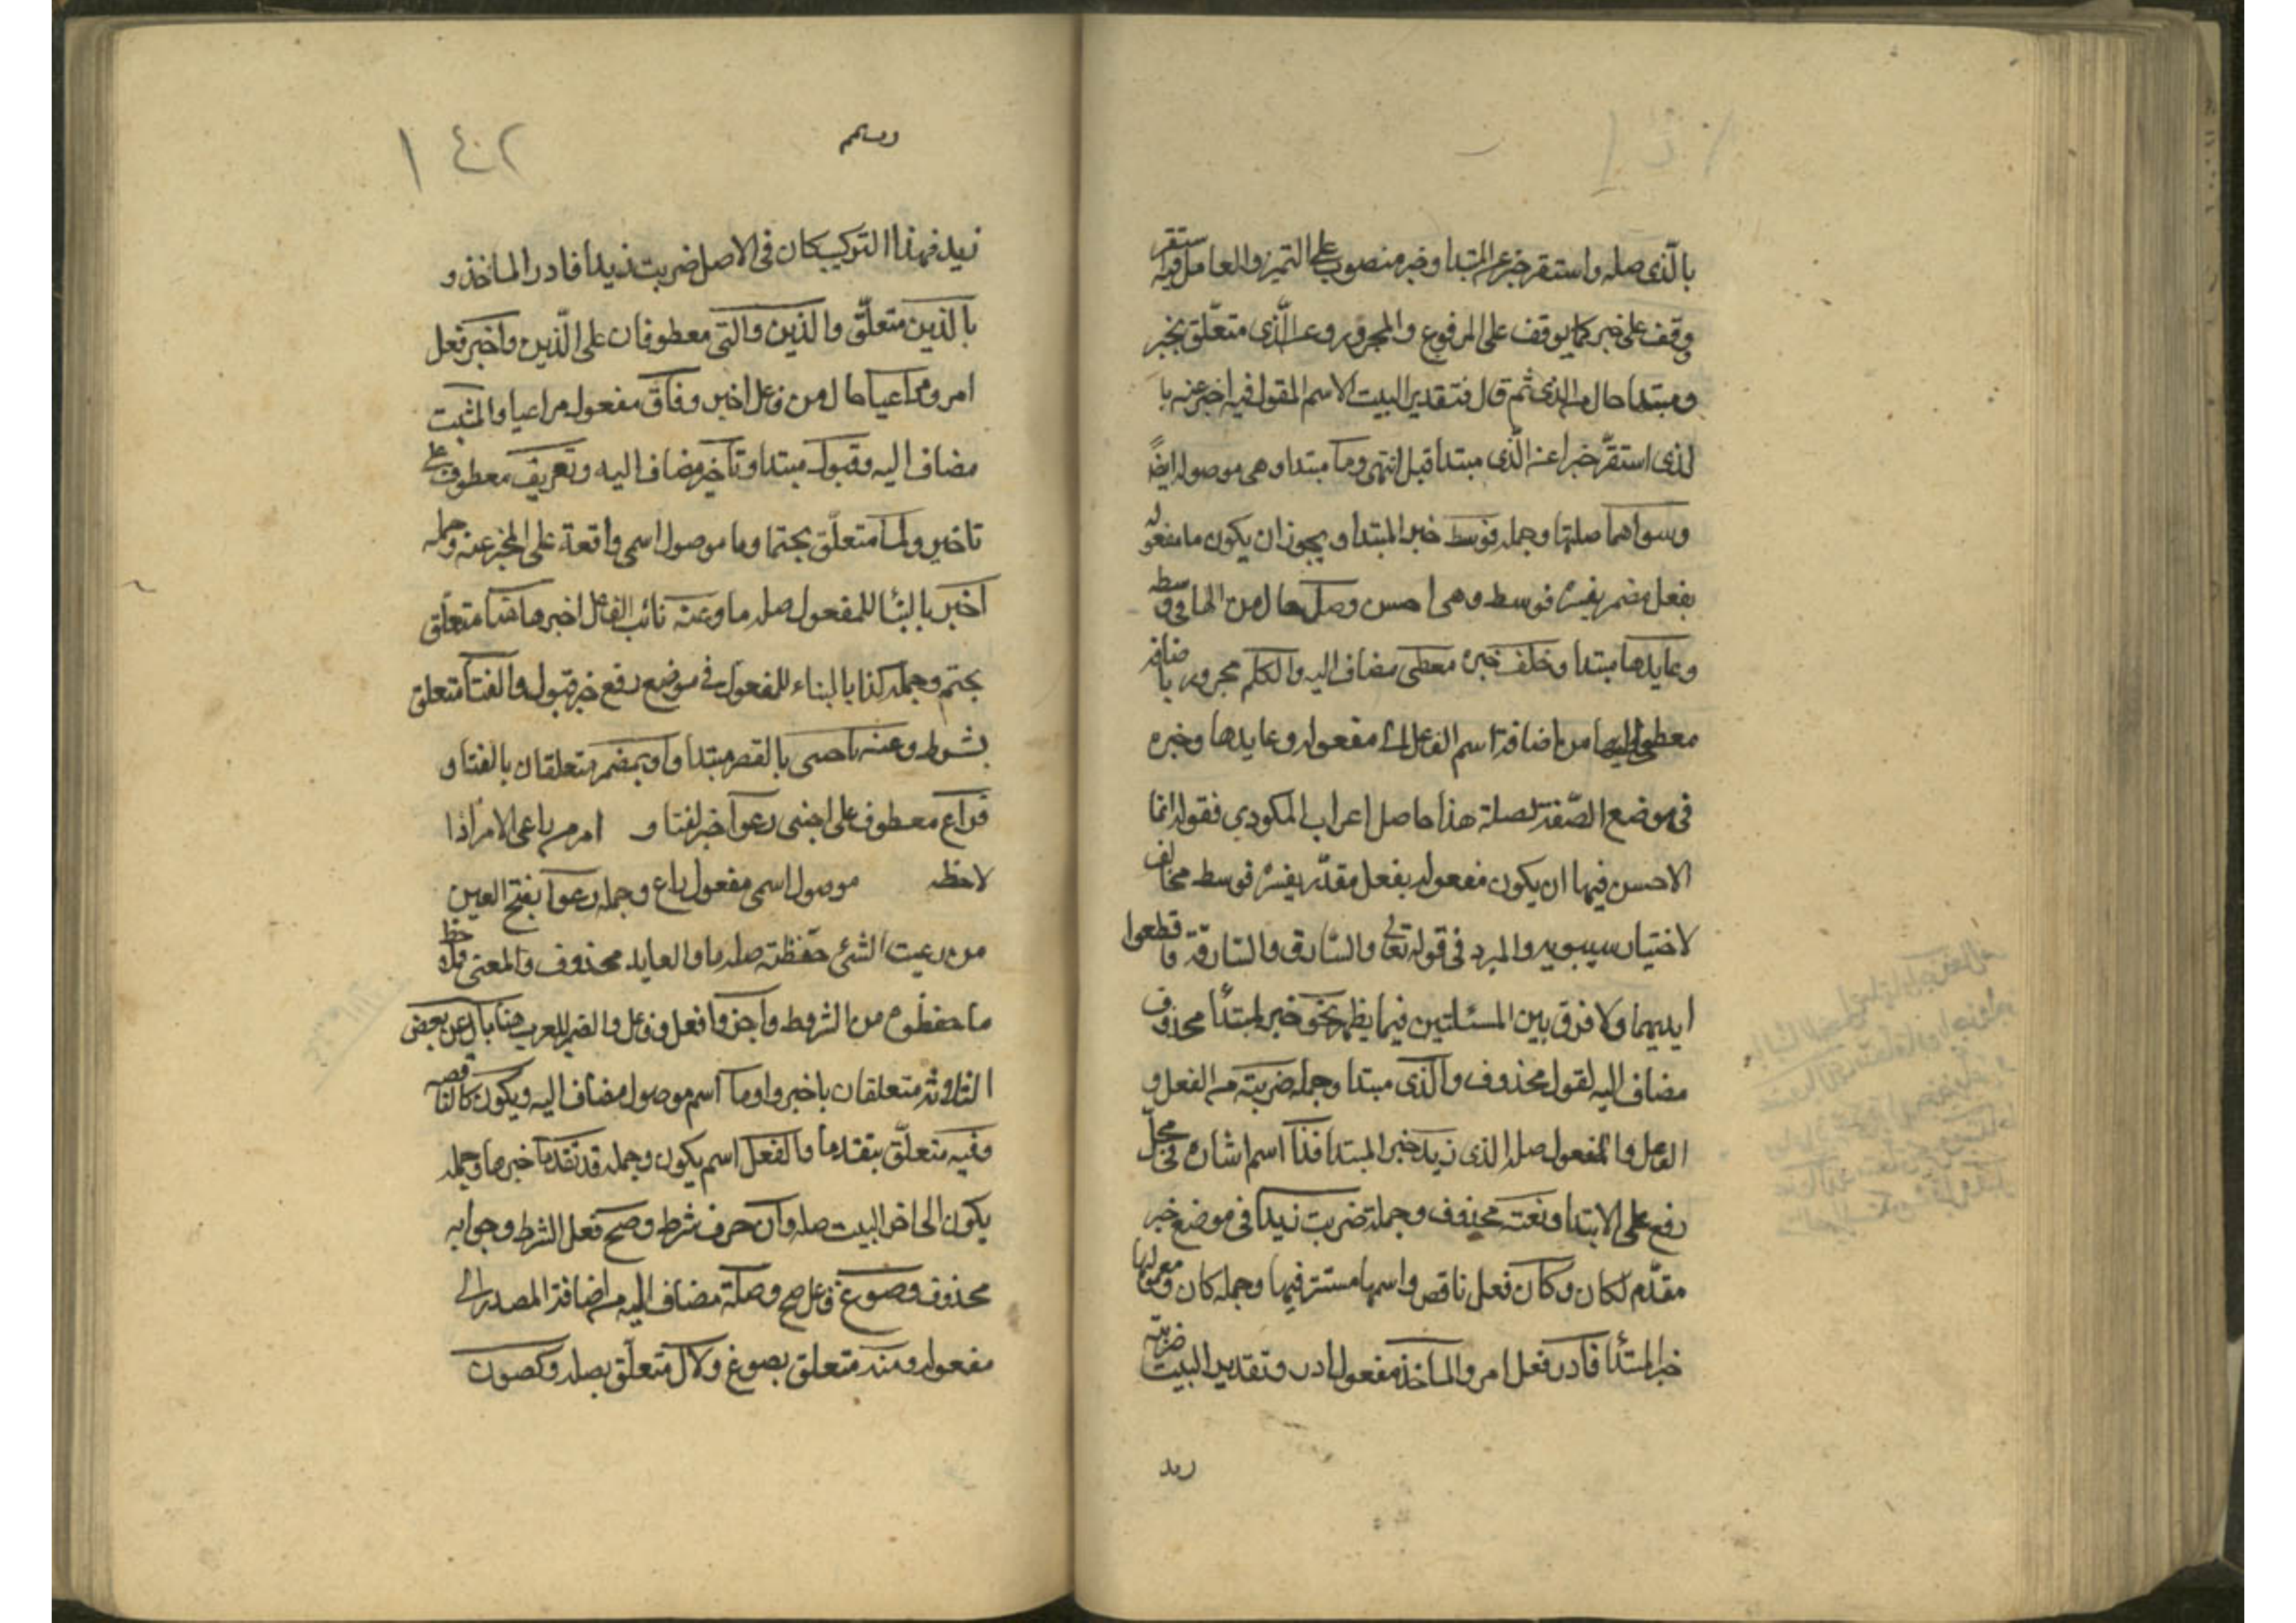 بالذي صله واستقر خبر عن المبتدا وخبر منصوب على التميز والعامل فيه استقر
وقف على خبر كما يوقف على المرفوع والمجرور وعن الذي متعلق بخبر
ومبتدا حال من الذي ثم قال فتقدير البيت الاسم المقول فيه اخبر عنه با
لذي استقر خبرا عن الذي مبتدا قبل انتهى وما مبتدا وهي موصوله ايضا
وسواهما صلتها وجمله فوسطه خبر المبتدا ويجوز ان يكون ما مفعوله
بفعل مضمر يفسره فوسطه وهي احسن وصله حال من الها في وسطه
وعايدها مبتدا وخلف خبره معطي مضاف اليه والكلم مجرور باضافه
معطي اليها من اضافة اسم الفاعل الى مفعوله وعايدها وخبره
في موضع الصفة لصلة هذا حاصل اعراب المكودي فقوله انما
الاحسن فيها ان يكون مفعوله بفعل مقدر يفسره فوسطه مخالف
لاختيار سيبويه والمبرد في قوله تعالى والسارق والسارقة فاقطعوا
ايديهما ولا فرق بين المسئلتين فيما يظهر نحو خبر لمبتدأ محذوف
مضاف اليه لقول محذوف والذي مبتدا وجمله ضربته من الفعل و
الفاعل والمفعول صله الذي زيد خبر المبتدا فذا اسم اشاره في محل
رفع على الابتدا ونعته محذوف وجملة ضربت زيدا في موضع خبر
مقدم لكان وكان فعل ناقص واسمها مستتر فيها وجمله كان ومعمولها
خبر المبتدأ فادر فعل امر والماخذ مفعول ادر وتقدير البيت ضربته
زيد
١٤٢
زيد فهذا التركيب كان في الاصل ضربت زيدا فادر الماخذ و
بالذين متعلق والذين والتي معطوفان على الذين واخبر فعل
امر ومراعيا حال من فاعل اخبر وفاق مفعول مراعيا والمثبت
مضاف اليه وقبول مبتدا وتاخير مضاف اليه وتعريف معطوف على
تاخير ولما متعلق بحتما وما موصول اسمي واقعة على المخبر عنه وجمله
اخبر بالبنا للمفعول صله ما وعنه نائب الفاعل اخبر هاهنا متعلق
بحتم وجمله كذا بالبناء للمفعول في موضع رفع خبر قبول والغنا متعلق
بشرط وعنه باجنبي بالقصر مبتدا واو بمضمر متعلقان بالغنا و
فراع معطوف على اجنبي رعوا خبر لغنا و امر من راعى الامر اذا
لاحظه موصول اسمي مفعول راع وجمله رعوا بفتح العين
من رعيت الشئ حفظته صله ما والعايد محذوف والمعنى فلاحظ
ما حفظوه من الشروط واخبروا فعل وفاعل والضمير للعرب هنا بال عن بعض
الثلاثه متعلقان باخبروا وما اسم موصول مضاف اليه ويكون
وفيه متعلق بتقدما والفعل اسم يكون وجمله قد تقدما خبرها وجمله
يكون الى اخر البيت صله وان حرف شرط وصح فعل الشرط وجوابه
محذوف وصوغ فاعل صح وصلة مضاف اليه من اضافة المصدر الى
مفعوله ومنه متعلق بصوغ ولال متعلق بصله وكصون